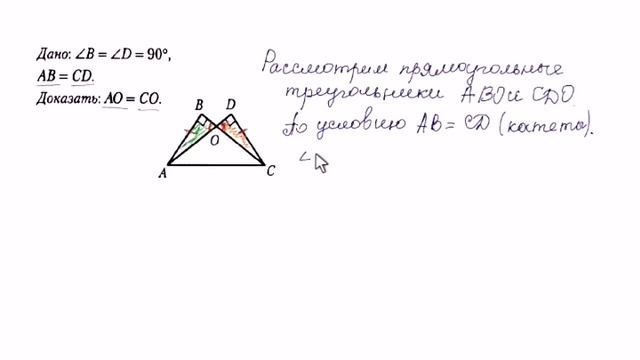 Дано: ∠B = ∠D = 90°,
AB = CD.
Доказать: AO = CO.
Рассмотрим прямоугольные
треугольники ABO и CDO.
По условию AB = CD (катеты).
∠
B
D
O
A
C